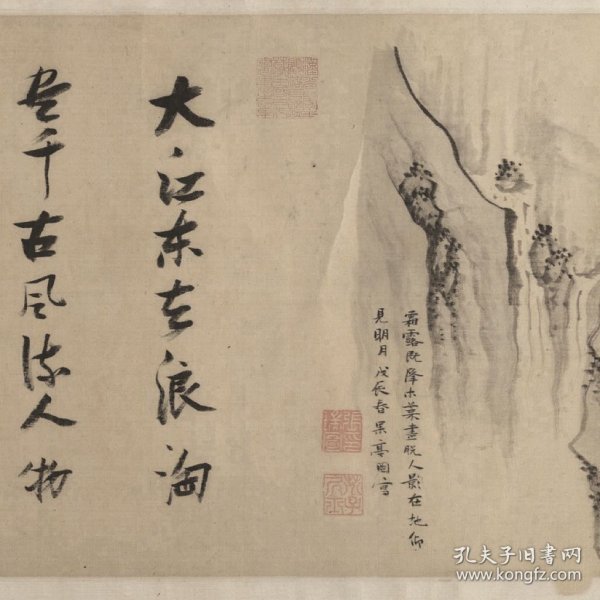 霜露既降木葉盡脱人影在地仰
見明月戊辰春果亭圖寫
大江东去浪淘
尽千古风流人物
孔夫子旧书网
www.kongfz.com